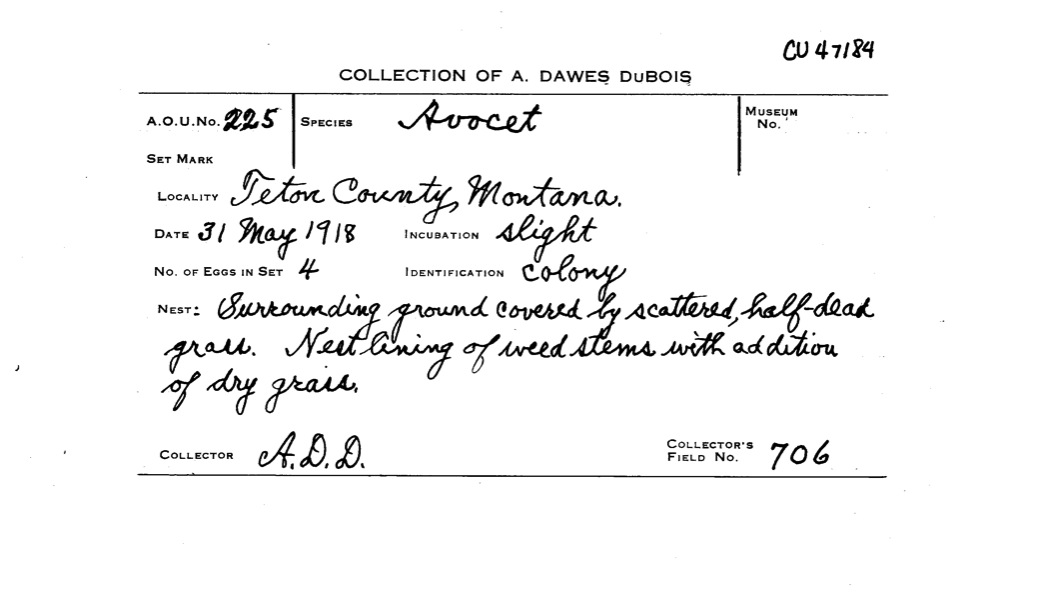 CU 47184
COLLECTION OF A. DAWES DUBOIS
A.O.U.No. 225 SPECIES Avocet MUSEUM No.
SET MARK
LOCALITY Teton County, Montana.
DATE 31 May 1918 INCUBATION slight
NO. OF EGGS IN SET 4 IDENTIFICATION colony
NEST: Surrounding ground covered by scattered, half-dead
grass. Nest lining of weed stems with addition
of dry grass.
COLLECTOR A.D.D. COLLECTOR'S FIELD NO. 706